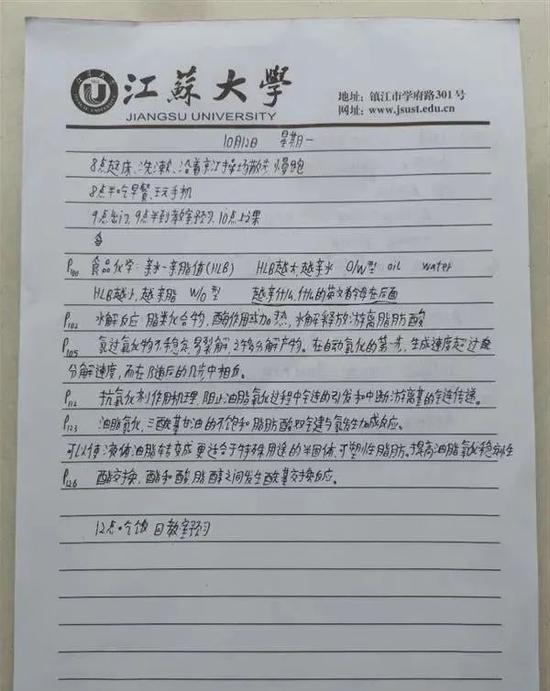 江蘇大學
JIANGSU UNIVERSITY
地址: 镇江市学府路301号
网址: www.jsust.edu.cn
10月12日 星期一
8点起床、洗漱、沿着京江操场散步、慢跑
8点半吃早餐、玩手机
9点出门, 9点半到教室预习, 10点上课
P100 食品化学: 亲水-亲脂值(HLB) HLB越大,越亲水 O/W型 oil water
HLB越小,越亲脂 W/O型 越亲什么,什么的英文字母在后面
P102 水解反应: 脂类化合物, 酶作用或加热, 水解释放游离脂肪酸
P105 氢过氧化物不稳定, 易裂解, 分解产物。在自动氧化的第一步, 生成速度超过
分解速度, 而在随后的几步中相反。
P112 抗氧化剂作用机理, 阻止油脂氧化过程中链的引发和中断游离基的链传递。
P123 油脂氢化, 三酰基甘油的不饱和脂肪酸双键与氢发生加成反应。
可以使液体油脂转变成更适合于特殊用途的半固体、可塑性脂肪。提高油脂氧化稳定性
P126 酯交换, 酯和酸、脂、醇之间发生酰基交换反应。
12点吃饭 回教室预习